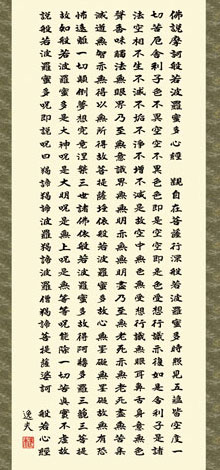 佛說摩訶般若波羅蜜多心經 觀自在菩薩行深般若波羅蜜多時照見五蘊皆空度一
切苦厄舍利子色不異空空不異色色即是空空即是色受想行識亦復如是舍利子是諸
法空相不生不滅不垢不淨不增不減是故空中無色無受想行識無眼耳鼻舌身意無色
聲香味觸法無眼界乃至無意識界無無明亦無無明盡乃至無老死亦無老死盡無苦集
滅道無智亦無得以無所得故菩提薩埵依般若波羅蜜多故心無罣礙無罣礙故無有恐
怖遠離一切顛倒夢想究竟涅槃三世諸佛依般若波羅蜜多故得阿耨多羅三藐三菩提
故知般若波羅蜜多是大神咒是大明咒是無上咒是無等等咒能除一切苦真實不虛故
說般若波羅蜜多咒即說咒曰揭諦揭諦波羅揭諦波羅僧揭諦菩提薩婆訶 般若心經
逸夫